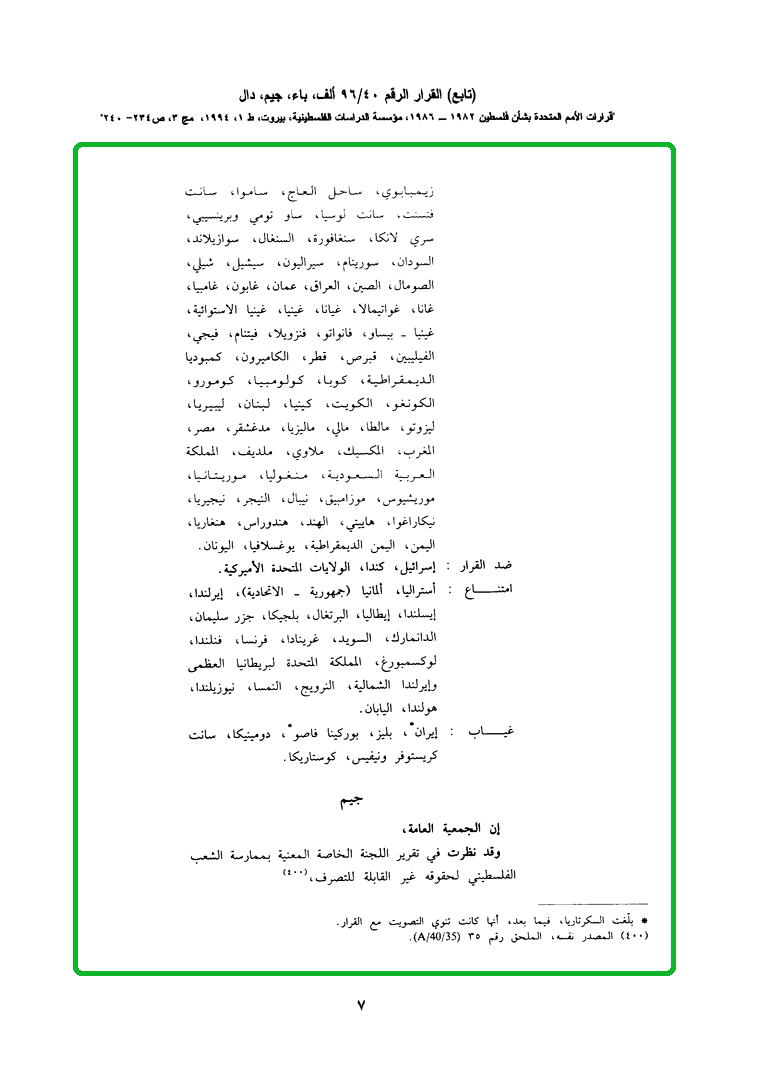 (تابع) القرار الرقم ٩٦/٤٠ ألف، باء، جيم، دال
"قرارات الأمم المتحدة بشأن فلسطين ١٩٨٢ ــ ١٩٨٦، مؤسسة الدراسات الفلسطينية، بيروت، ط ١، ١٩٩٤، مج ٣، ص٢٣٤- ٢٤٠"
زيمبابوي، ساحل العاج، ساموا، سانت
فنسنت، سانت لوسيا، ساو تومي وبرينسيبي،
سري لانكا، سنغافورة، السنغال، سوازيلاند،
السودان، سورينام، سيراليون، سيشيل، شيلي،
الصومال، الصين، العراق، عمان، غابون، غامبيا،
غانا، غواتيمالا، غيانا، غينيا، غينيا الاستوائية،
غينيا ـ بيساو، فانواتو، فنزويلا، فيتنام، فيجي،
الفيليبين، قبرص، قطر، الكاميرون، كمبوديا
الديمقراطية، كوبا، كولومبيا، كومورو،
الكونغو، الكويت، كينيا، لبنان، ليبيريا،
ليزوتو، مالطا، مالي، ماليزيا، مدغشقر، مصر،
المغرب، المكسيك، ملاوي، ملديف، المملكة
العربية السعودية، منغوليا، موريتانيا،
موريشيوس، موزامبيق، نيبال، النيجر، نيجيريا،
نيكاراغوا، هاييتي، الهند، هندوراس، هنغاريا،
اليمن، اليمن الديمقراطية، يوغسلافيا، اليونان.
ضد القرار : إسرائيل، كندا، الولايات المتحدة الأميركية.
امتنـــــاع : أستراليا، ألمانيا (جمهورية ـ الاتحادية)، إيرلندا،
إيسلندا، إيطاليا، البرتغال، بلجيكا، جزر سليمان،
الدانمارك، السويد، غرينادا، فرنسا، فنلندا،
لوكسمبورغ، المملكة المتحدة لبريطانيا العظمى
وإيرلندا الشمالية، النرويج، النمسا، نيوزيلندا،
هولندا، اليابان.
غيـــــاب : إيران*، بليز، بوركينا فاصو*، دومينيكا، سانت
كريستوفر ونيفيس، كوستاريكا.
جيم
إن الجمعية العامة،
وقد نظرت في تقرير اللجنة الخاصة المعنية بممارسة الشعب
الفلسطيني لحقوقه غير القابلة للتصرف،(٤٠٠)
* بلّغت السكرتاريا، فيما بعد، أنها كانت تنوي التصويت مع القرار.
(٤٠٠) المصدر نفسه، الملحق رقم ٣٥ (A/40/35).
٧